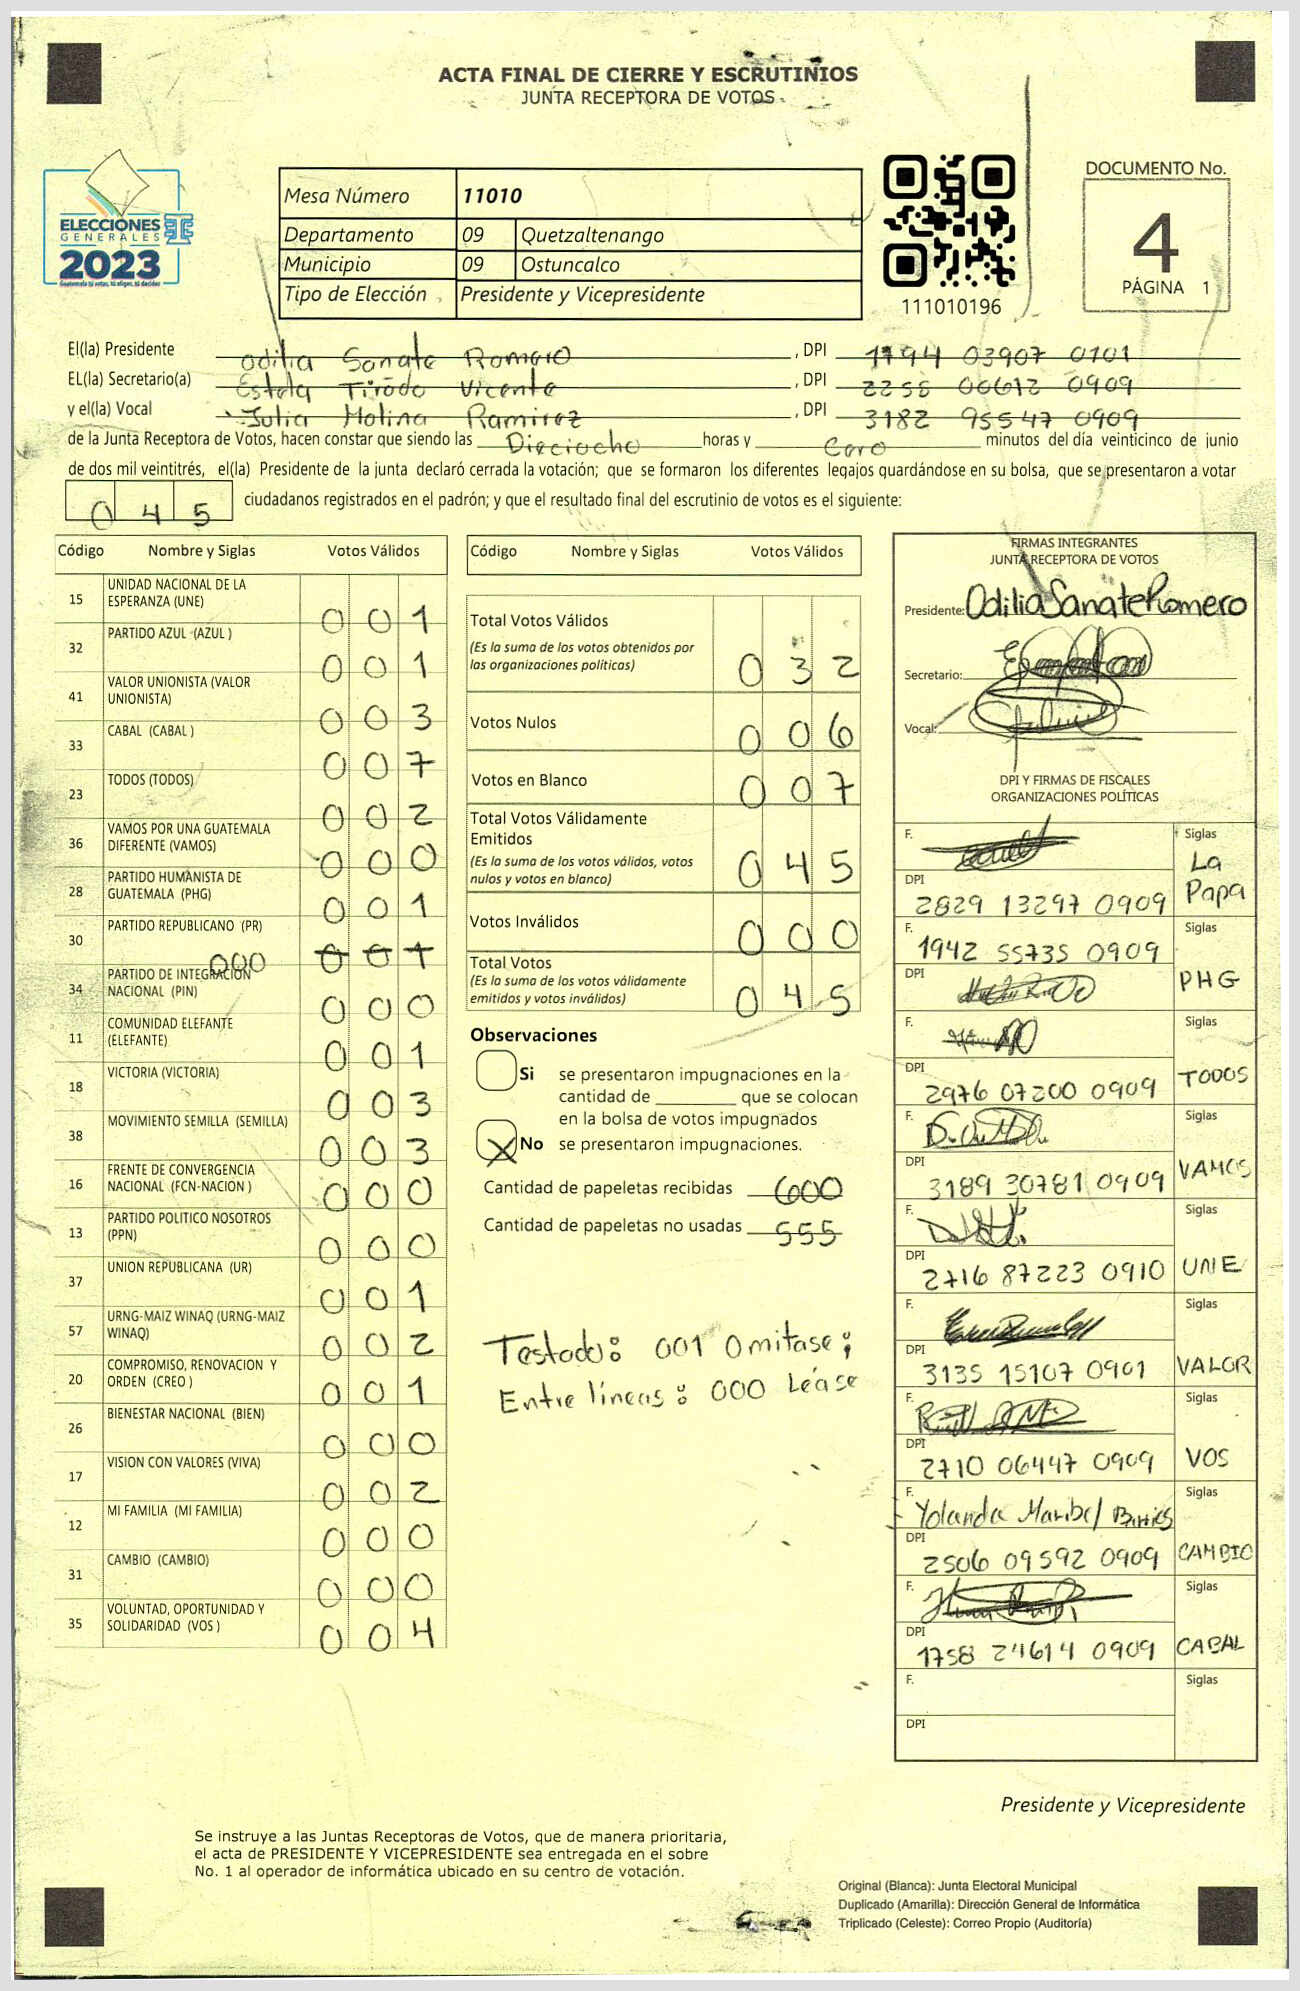 ACTA FINAL DE CIERRE Y ESCRUTINIOS
JUNTA RECEPTORA DE VOTOS
ELECCIONES
GENERALES
2023
Guatemala tú votas, tú eliges, tú decides
Mesa Número 11010
Departamento 09 Quetzaltenango
Municipio 09 Ostuncalco
Tipo de Elección Presidente y Vicepresidente
111010196
DOCUMENTO No.
4
PÁGINA 1
El(la) Presidente Odilia Sanate Romero, DPI 1794 03907 0101
EL(la) Secretario(a) Estela Tirado Vicente, DPI 2258 00612 0909
y el(la) Vocal Julia Molina Ramirez, DPI 3182 95547 0909
de la Junta Receptora de Votos, hacen constar que siendo las Dieciocho horas y Cero minutos del día veinticinco de junio
de dos mil veintitrés, el(la) Presidente de la junta declaró cerrada la votación; que se formaron los diferentes legajos guardándose en su bolsa, que se presentaron a votar
045 ciudadanos registrados en el padrón; y que el resultado final del escrutinio de votos es el siguiente:
Código Nombre y Siglas Votos Válidos
15 UNIDAD NACIONAL DE LA ESPERANZA (UNE) 001
32 PARTIDO AZUL (AZUL ) 001
41 VALOR UNIONISTA (VALOR UNIONISTA) 003
33 CABAL (CABAL ) 007
23 TODOS (TODOS) 002
36 VAMOS POR UNA GUATEMALA DIFERENTE (VAMOS) 000
28 PARTIDO HUMANISTA DE GUATEMALA (PHG) 001
30 PARTIDO REPUBLICANO (PR) 000 001
34 PARTIDO DE INTEGRACION NACIONAL (PIN) 000
11 COMUNIDAD ELEFANTE (ELEFANTE) 001
18 VICTORIA (VICTORIA) 003
38 MOVIMIENTO SEMILLA (SEMILLA) 003
16 FRENTE DE CONVERGENCIA NACIONAL (FCN-NACION ) 000
13 PARTIDO POLITICO NOSOTROS (PPN) 000
37 UNION REPUBLICANA (UR) 001
57 URNG-MAIZ WINAQ (URNG-MAIZ WINAQ) 002
20 COMPROMISO, RENOVACION Y ORDEN (CREO ) 001
26 BIENESTAR NACIONAL (BIEN) 000
17 VISION CON VALORES (VIVA) 002
12 MI FAMILIA (MI FAMILIA) 000
31 CAMBIO (CAMBIO) 000
35 VOLUNTAD, OPORTUNIDAD Y SOLIDARIDAD (VOS ) 004
Código Nombre y Siglas Votos Válidos
Total Votos Válidos 032
(Es la suma de los votos obtenidos por
las organizaciones políticas)
Votos Nulos 006
Votos en Blanco 007
Total Votos Válidamente
Emitidos 045
(Es la suma de los votos válidos, votos
nulos y votos en blanco)
Votos Inválidos 000
Total Votos 045
(Es la suma de los votos válidamente
emitidos y votos inválidos)
Observaciones
Si se presentaron impugnaciones en la
cantidad de ________ que se colocan
en la bolsa de votos impugnados
X No se presentaron impugnaciones.
Cantidad de papeletas recibidas 600
Cantidad de papeletas no usadas 555
Testado: 001 Omitase;
Entre líneas: 000 Léase
FIRMAS INTEGRANTES
JUNTA RECEPTORA DE VOTOS
Presidente: Odilia Sanate Romero
Secretario:
Vocal:
DPI Y FIRMAS DE FISCALES
ORGANIZACIONES POLÍTICAS
F. Siglas
La Papa
DPI 2829 13297 0909
F. 1942 55735 0909 Siglas
DPI PHG
F. Siglas
DPI 2976 07200 0909 TODOS
F. Siglas
DPI 3189 30781 0909 VAMOS
F. Siglas
DPI 2716 87223 0910 UNE
F. Siglas
DPI 3135 15107 0901 VALOR
F. Siglas
DPI 2710 06447 0909 VOS
F. Yolanda Maribel Barrios Siglas
DPI 2506 09592 0909 CAMBIO
F. Siglas
DPI 1758 24614 0909 CABAL
F. Siglas
DPI
Presidente y Vicepresidente
Se instruye a las Juntas Receptoras de Votos, que de manera prioritaria,
el acta de PRESIDENTE Y VICEPRESIDENTE sea entregada en el sobre
No. 1 al operador de informática ubicado en su centro de votación.
Original (Blanca): Junta Electoral Municipal
Duplicado (Amarilla): Dirección General de Informática
Triplicado (Celeste): Correo Propio (Auditoría)